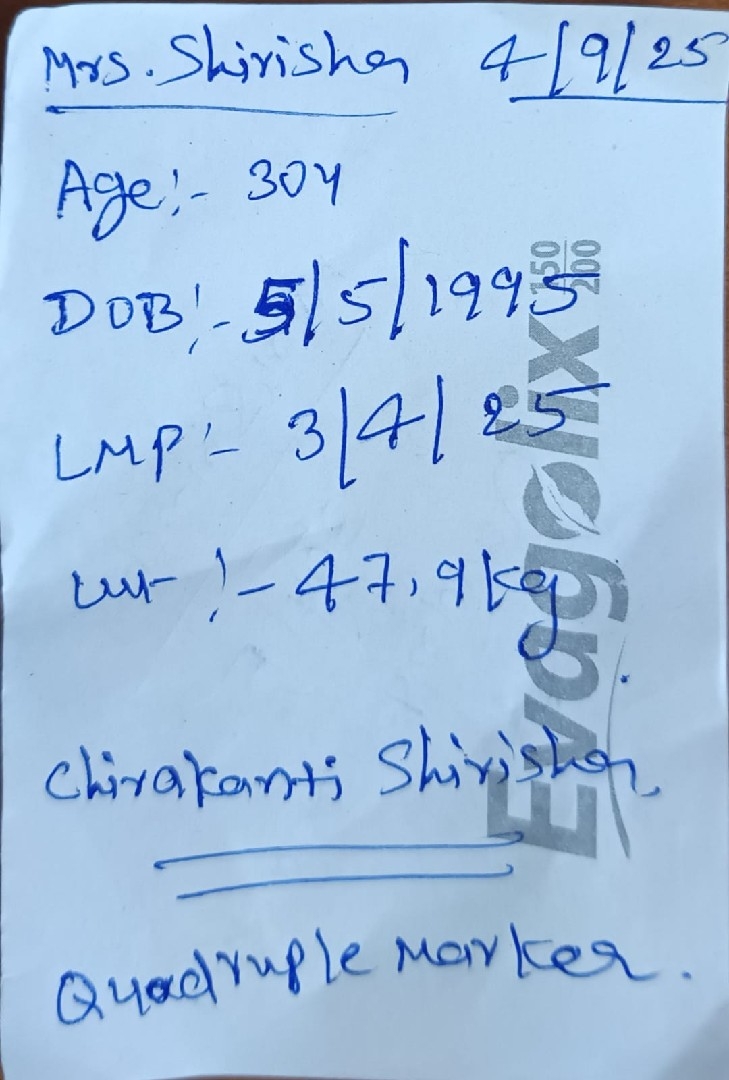 Mrs. Shirisha 4/9/25
Age:- 30y
DOB:- 5/5/1995
LMP:- 3/4/25
wt:- 47.9kg
Chirakanti Shirisha
Quadruple Marker.
Evagolix 150
200